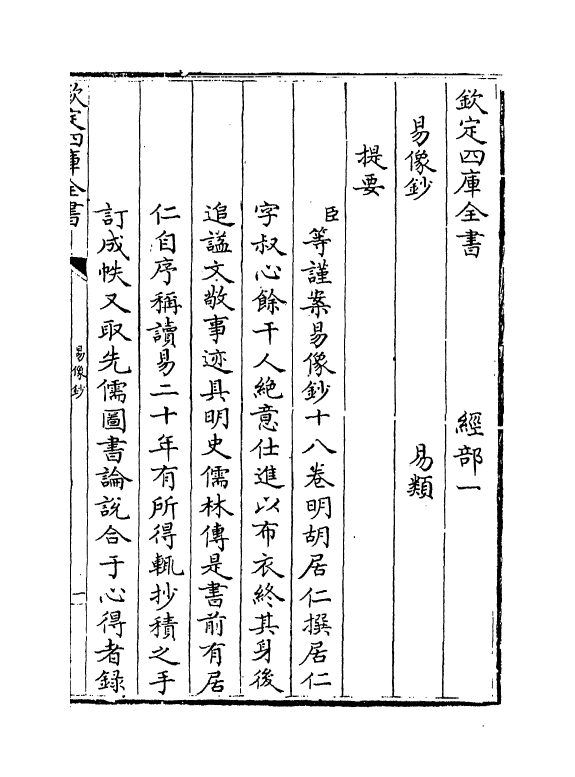 欽定四庫全書 經部一
易像鈔 易類
提要
臣等謹案易像鈔十八卷明胡居仁撰居仁
字叔心餘干人絶意仕進以布衣終其身後
追諡文敬事迹具明史儒林傳是書前有居
仁自序稱讀易二十年有所得輒抄積之手
訂成帙又取先儒圖書論説合于心得者録
欽定四庫全書
易像鈔
一